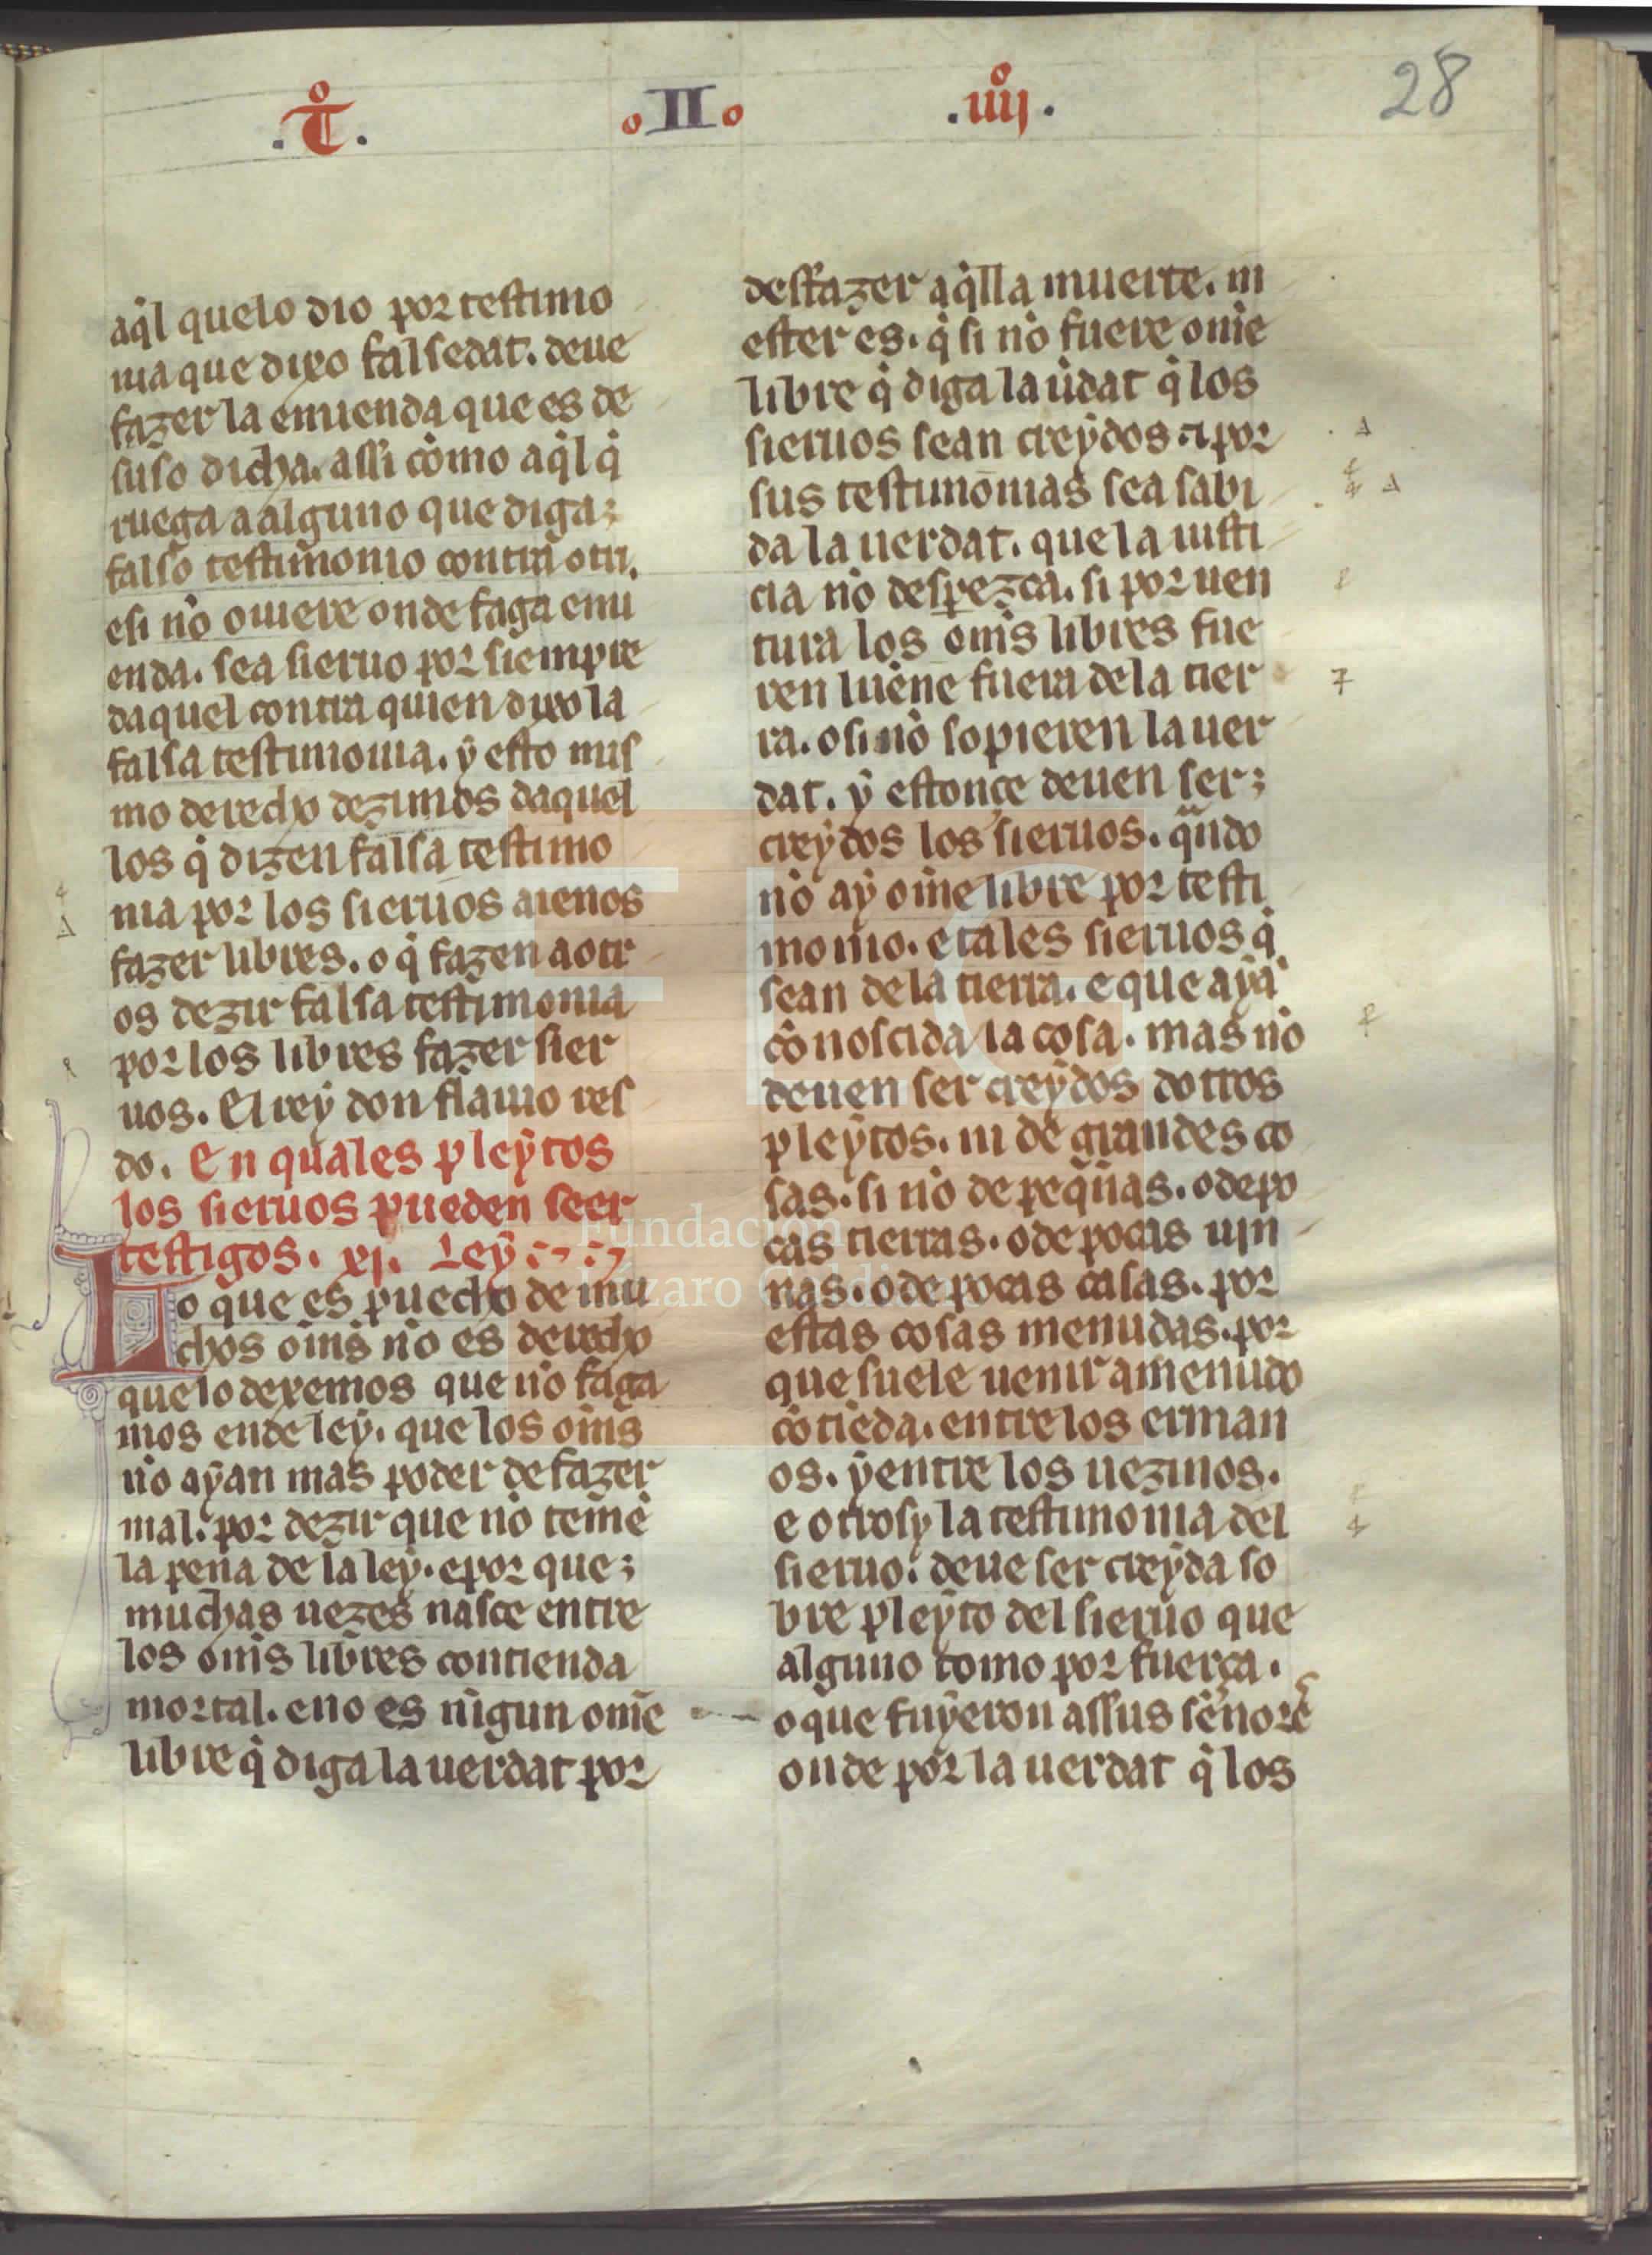 .T̊.
o II o
.iiij̊.
28
aq̇l quelo dio por testimo
nia que dixo falsedat. deue
fazer la emienda que es de
suso dicha. assi como aq̇l q̇
ruega a alguno que diga;
falso testimonio contra otri.
esi nȯ ouiere onde faga emi
enda. sea sieruo por siempre
daquel contra quien dixo la
falsa testimonia. ẏ esto mis
mo derecho dezimos daquel
los q̇ dizen falsa testimo
nia por los sieruos aienos
fazer libres. o q̇ fazen a otr
os dezir falsa testimonia
por los libres fazer sier
uos. El reẏ don flauio res
do. En quales pleẏtos
los sieruos pueden seer
testigos. xj. Leẏ
Lo que es puecho de mu
chos om̄s nȯ es derecho
que lo dexemos que nȯ faga
mos ende leẏ. que los om̄s
nȯ aẏan mas poder de fazer
mal. por dezir que nȯ temē
la pena de la leẏ. epor que;
muchas uezes nasce entre
los om̄s libres contienda
mortal. eno es nīgun om̄e
libre q̇ diga la uerdat por
desfazer aq̇lla muerte. m
ester es. q̇ si nȯ fuere om̄e
libre q̇ diga la ūdat q̇ los
sieruos sean creẏdos. ⁊ por
sus testimōnias sea sabi
da la uerdat. que la iusti
cia nȯ desperezca. si por uen
tura los om̄s libres fue
ren luēne fuera dela tier
ra. o si nȯ sopieren la uer
dat. ẏ estonçe deuen ser;
creẏdos los sieruos. qndo
nȯ aẏ om̄e libre por testi
monio. e tales sieruos q̇
sean de la tierra. e que aẏā
cōnoscida la cosa. mas nȯ
deuen ser creẏdos dotros
pleẏtos. ni de grandes co
sas. si nȯ de peq̄nas. o de po
cas tierras. o de pocas uin
nas. o de pocas casas. por
estas cosas menudas. por
que suele uenir amenudo
cōtiēda. entre los erman
os. ẏ entre los uezinos.
e otrosy la testimonia del
sieruo. deue ser creẏda so
bre pleẏto del sieruo que
alguno tomo por fuerça.
o que fuẏeron assus sēnores
onde por la uerdat q̇ los
Fundación
Lázaro Galdiano